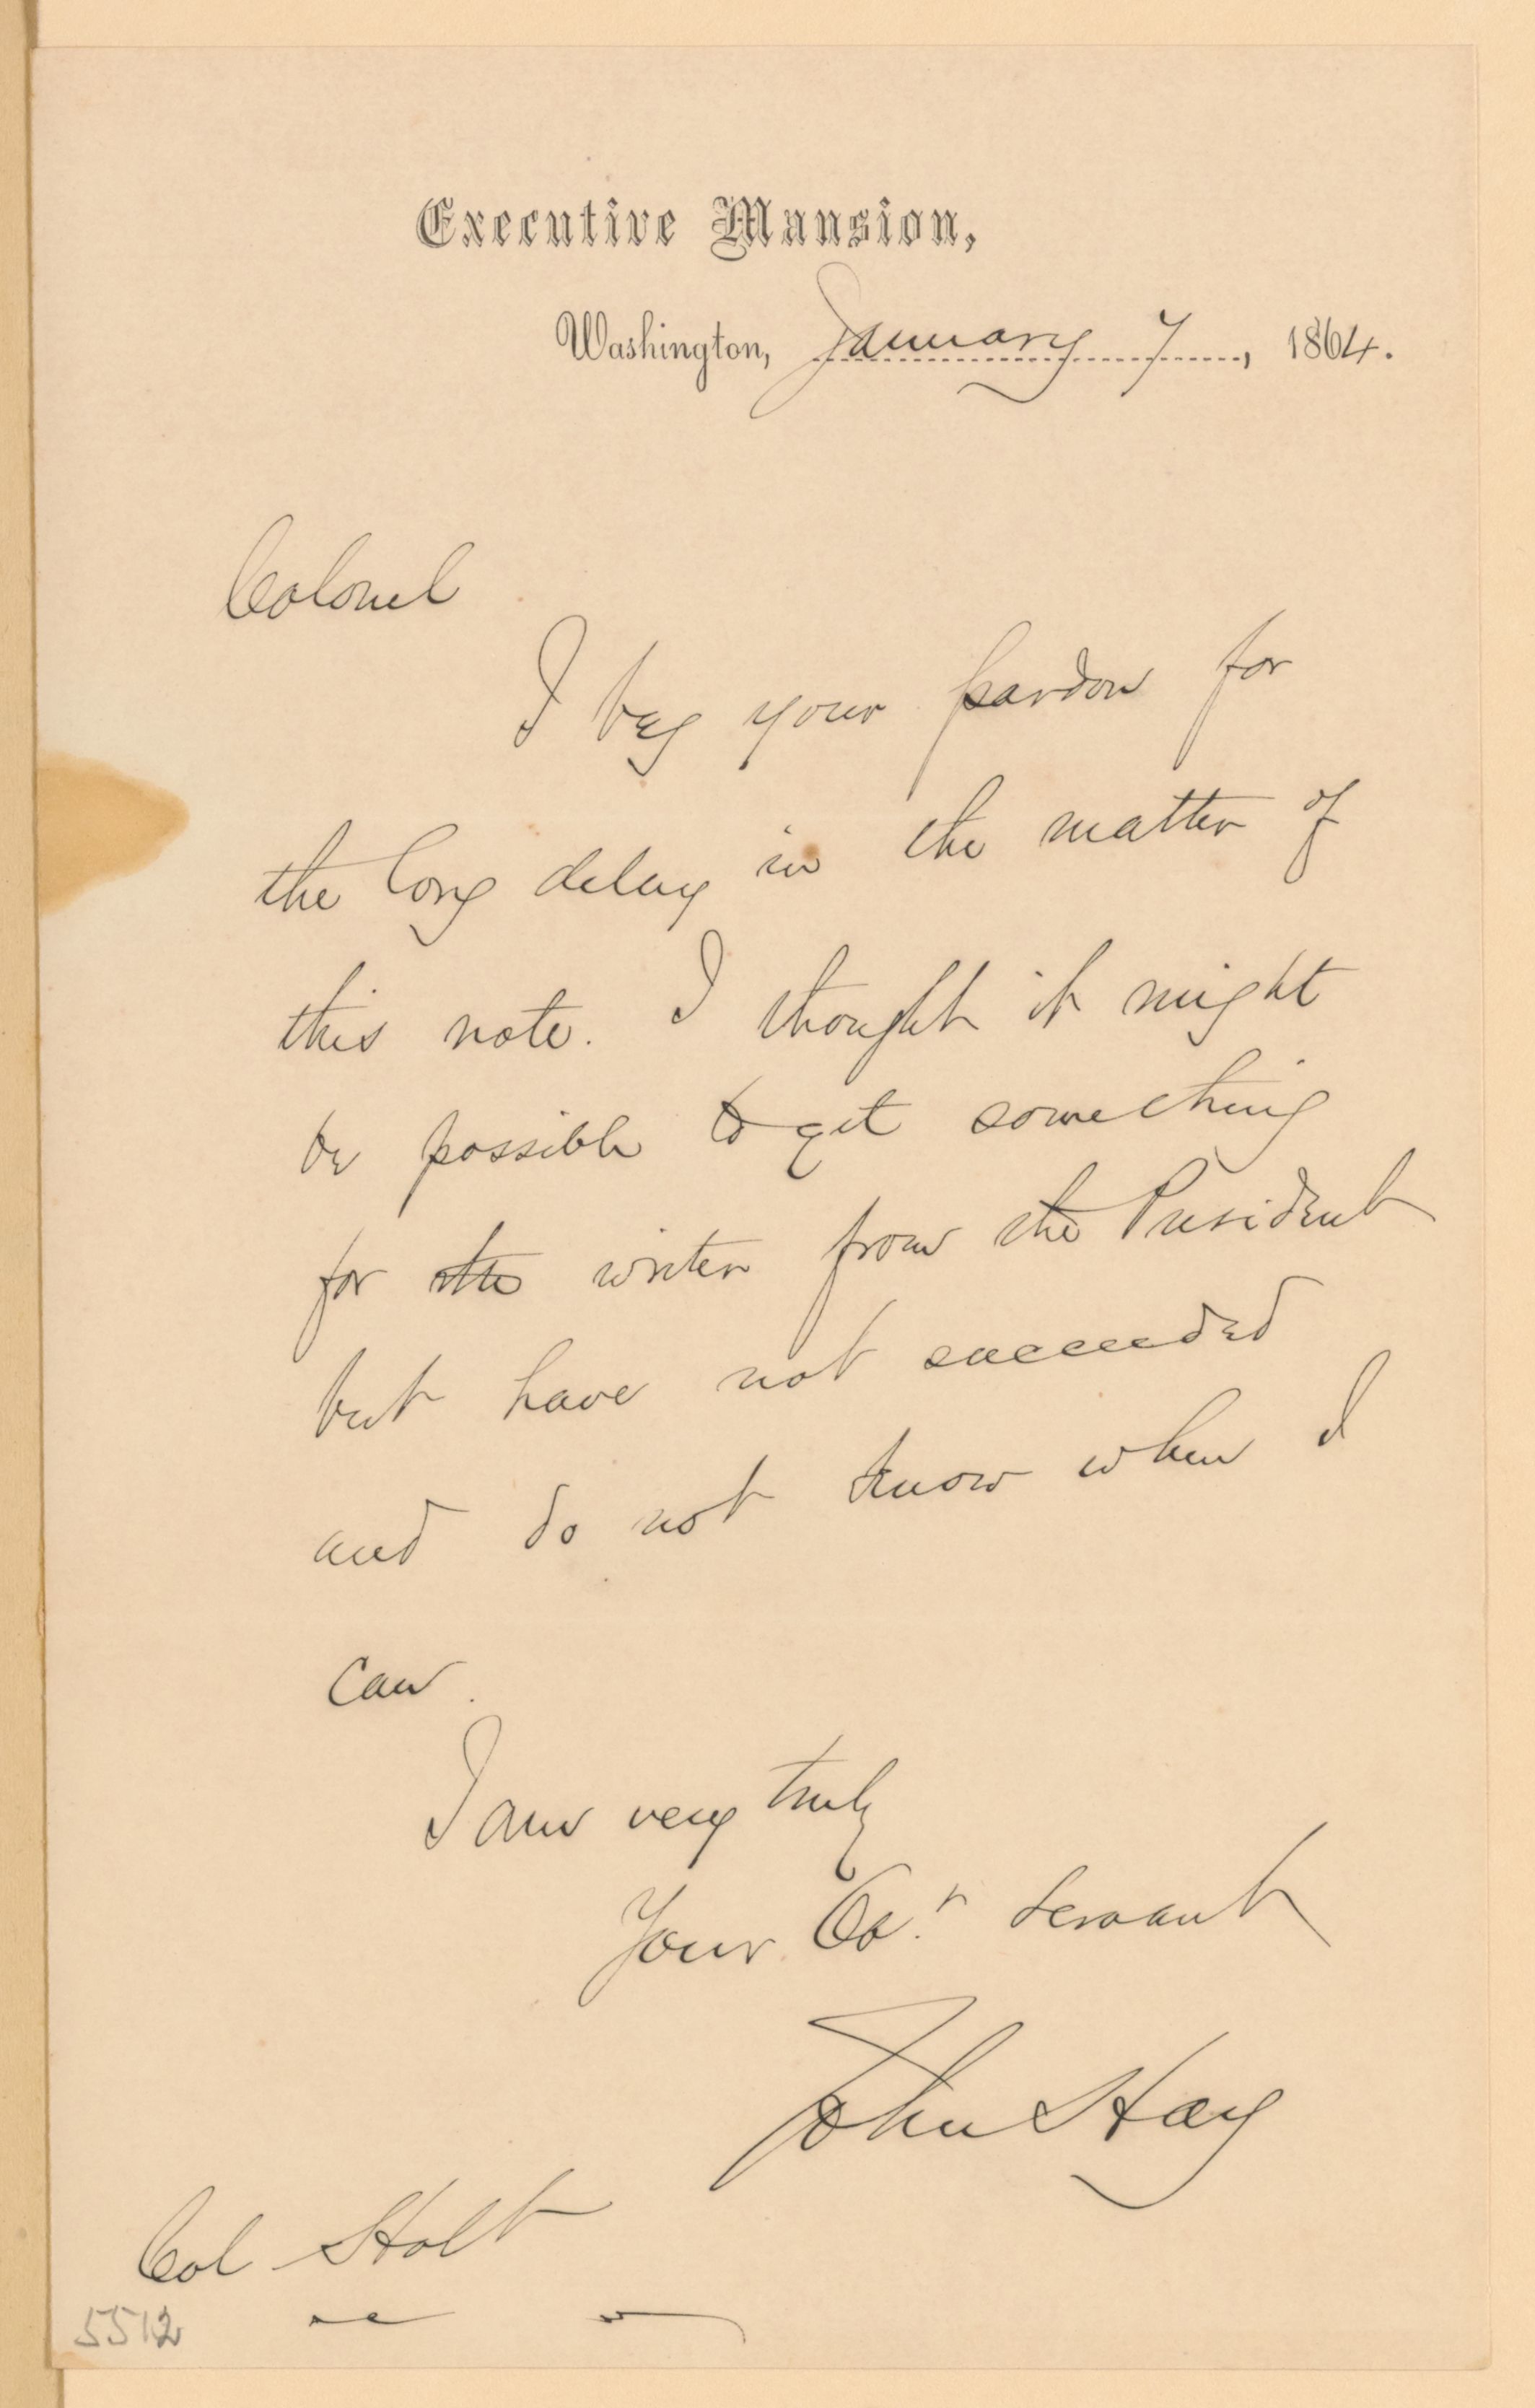 Executive Mansion,
Washington, January 7, 1864.
Colonel
I beg your pardon for
the long delay in the matter of
this note. I thought it might
be possible to get something
for the writer from the President
but have not succeeded
and do not know when I
can.
I am very truly
Your Ob.t Servant
John Hay
Col Holt
5512